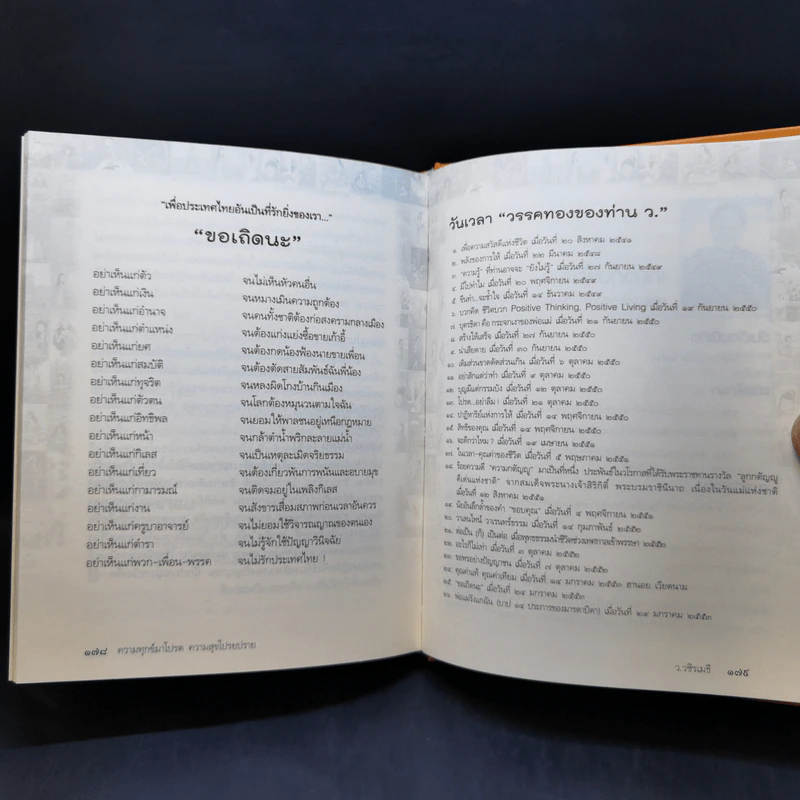 "เพื่อประเทศไทยอันเป็นที่รักยิ่งของเรา..."
"ขอเถิดนะ"
อย่าเห็นแก่ตัว จนไม่เห็นหัวคนอื่น
อย่าเห็นแก่เงิน จนหมางเมินความถูกต้อง
อย่าเห็นแก่อำนาจ จนคนทั้งชาติต้องก่อสงครามกลางเมือง
อย่าเห็นแก่ตำแหน่ง จนต้องแก่งแย่งซื้อขายเก้าอี้
อย่าเห็นแก่ยศ จนต้องกดน้องฟ้องนายขายเพื่อน
อย่าเห็นแก่สมบัติ จนต้องตัดสายสัมพันธ์ฉันพี่น้อง
อย่าเห็นแก่ทุจริต จนหลงผิดโกงบ้านกินเมือง
อย่าเห็นแก่ตัวตน จนโลกต้องหมุนวนตามใจฉัน
อย่าเห็นแก่อิทธิพล จนยอมให้พาลชนอยู่เหนือกฎหมาย
อย่าเห็นแก่หน้า จนกล้าตำน้ำพริกละลายแม่น้ำ
อย่าเห็นแก่กิเลส จนเป็นเหตุละเมิดจริยธรรม
อย่าเห็นแก่เที่ยว จนต้องเกี่ยวพันการพนันและอบายมุข
อย่าเห็นแก่กามารมณ์ จนติดจมอยู่ในเพลิงกิเลส
อย่าเห็นแก่งาน จนสังขารเสื่อมสภาพก่อนเวลาอันควร
อย่าเห็นแก่ครูบาอาจารย์ จนไม่ยอมใช้วิจารณญาณของตนเอง
อย่าเห็นแก่ตำรา จนไม่รู้จักใช้ปัญญาวินิจฉัย
อย่าเห็นแก่พวก-เพื่อน-พรรค จนไม่รักประเทศไทย !
๑๗๘ ความทุกข์มาโปรด ความสุขโปรยปราย
วันเวลา "วรรคทองของท่าน ว."
๑. เพื่อความสวัสดีแห่งชีวิต เมื่อวันที่ ๒๐ สิงหาคม ๒๕๔๑
๒. พลังของการให้ เมื่อวันที่ ๒๒ มีนาคม ๒๕๔๘
๓. "ความรู้" ที่ท่านอาจจะ "ยังไม่รู้" เมื่อวันที่ ๒๗ กันยายน ๒๕๔๙
๔. มีไปทำไม เมื่อวันที่ ๒๐ พฤศจิกายน ๒๕๔๙
๕. ขืนทำ..จะช้ำใจ เมื่อวันที่ ๑๔ ธันวาคม ๒๕๔๙
๖. บวกคิด ชีวิตบวก Positive Thinking, Positive Living เมื่อวันที่ ๑๙ กันยายน ๒๕๕๐
๗. บุตรธิดา คือ กระจกเงาของพ่อแม่ เมื่อวันที่ ๒๑ กันยายน ๒๕๕๐
๘. สร้างให้เสร็จ เมื่อวันที่ ๒๗ กันยายน ๒๕๕๐
๙. น่าเสียดาย เมื่อวันที่ ๓๐ กันยายน ๒๕๕๐
๑๐. เติมส่วนขาดตัดส่วนเกิน เมื่อวันที่ ๖ ตุลาคม ๒๕๕๐
๑๑. อย่าสักแต่ว่าทำ เมื่อวันที่ ๙ ตุลาคม ๒๕๕๐
๑๒. บุญมีแต่กรรมบัง เมื่อวันที่ ๑๒ ตุลาคม ๒๕๕๐
๑๓. โปรด..อย่าลืม! เมื่อวันที่ ๒๑ ตุลาคม ๒๕๕๐
๑๔. ปาฏิหาริย์แห่งการให้ เมื่อวันที่ ๑๔ พฤศจิกายน ๒๕๕๐
๑๕. สิทธิของคุณ เมื่อวันที่ ๑๔ พฤศจิกายน ๒๕๕๐
๑๖. จะดีกว่าไหม? เมื่อวันที่ ๑๙ เมษายน ๒๕๕๑
๑๗. ในเวลา-คุณค่าของชีวิต เมื่อวันที่ ๕ พฤษภาคม ๒๕๕๑
๑๘. ร้อยความดี "ความกตัญญู" มาเป็นที่หนึ่ง ประพันธ์ในวโรกาสที่ได้รับพระราชทานรางวัล "ลูกกตัญญู
ดีเด่นแห่งชาติ" จากสมเด็จพระนางเจ้าสิริกิติ์ พระบรมราชินีนาถ เนื่องในวันแม่แห่งชาติ
เมื่อวันที่ ๑๒ สิงหาคม ๒๕๕๑
๑๙. นัยอันลึกล้ำของคำ "ขอบคุณ" เมื่อวันที่ ๔ พฤศจิกายน ๒๕๕๑
๒๐. วาเลนไทน์ วาเรนทร์ธรรม เมื่อวันที่ ๑๔ กุมภาพันธ์ ๒๕๕๒
๒๑. ต่อเป็น (ก็) เป็นต่อ เมื่อพุทธธรรมนำชีวิตช่วงเทศกาลเข้าพรรษา ๒๕๕๒
๒๒. อะไรก็ไม่เท่า เมื่อวันที่ ๓ ตุลาคม ๒๕๕๒
๒๓. ขอพรอย่างปัญญาชน เมื่อวันที่ ๗ ตุลาคม ๒๕๕๒
๒๔. คุณค่าแท้ คุณค่าเทียม เมื่อวันที่ ๑๔ มกราคม ๒๕๕๓ ฮานอย เวียดนาม
๒๕. "ขอเถิดนะ" เมื่อวันที่ ๒๔ มกราคม ๒๕๕๓
๒๖. พ่อแม่รังแกฉัน (บาป ๑๔ ประการของมารดาบิดา) เมื่อวันที่ ๒๙ มกราคม ๒๕๕๓
ว.วชิรเมธี ๑๗๙